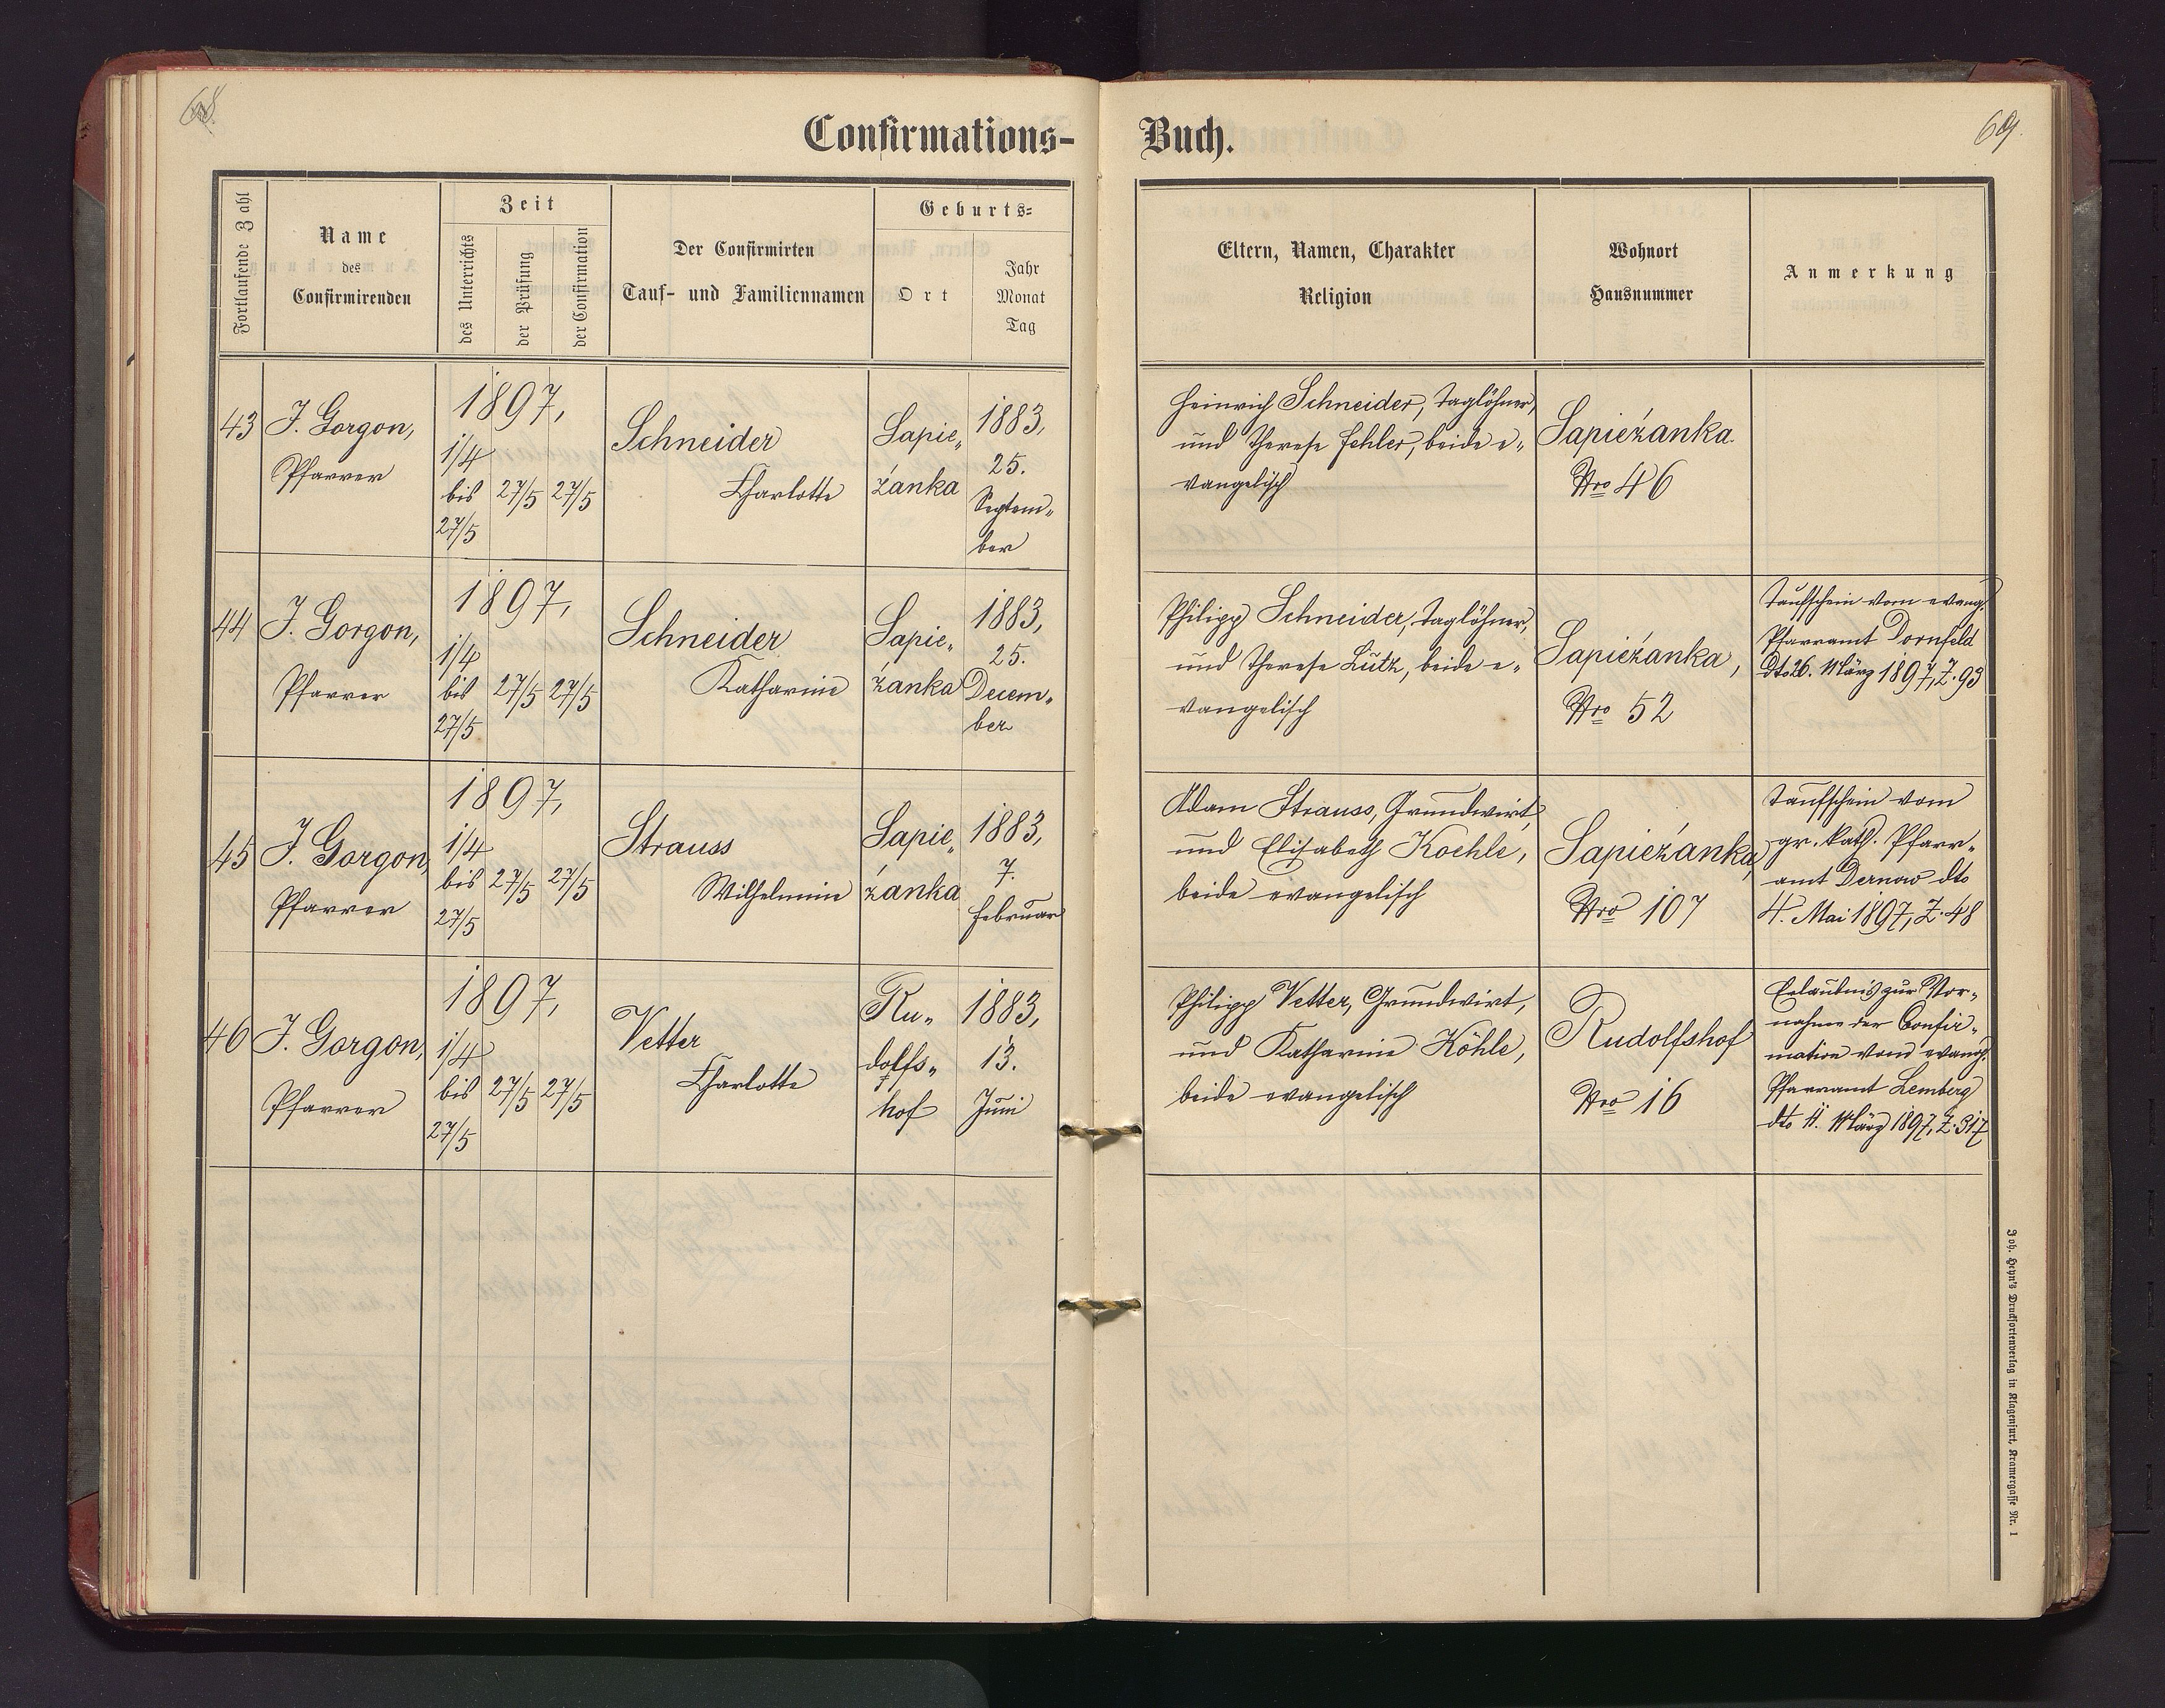 68.
Confirmations-
Fortlaufende Zahl
Name
des
Confirmirenden
Zeit
des Unterrichts
der Prüfung
der Confirmation
Der Confirmirten
Tauf- und Familiennamen
Geburts-
Ort
Jahr
Monat
Tag
43
J. Gorgon,
Pfarrer
1897,
1/4
bis
27/5
27/5
27/5
Schneider
Charlotte
Sapie-
żanka
1883,
25.
Septem-
ber
44
J. Gorgon,
Pfarrer
1897,
1/4
bis
27/5
27/5
27/5
Schneider
Katharine
Sapie-
żanka
1883,
25.
Decem-
ber
45
J. Gorgon,
Pfarrer
1897,
1/4
bis
27/5
27/5
27/5
Strauss
Wilhelmine
Sapie-
żanka
1883,
7.
Februar
46
J. Gorgon,
Pfarrer
1897,
1/4
bis
27/5
27/5
27/5
Vetter
Charlotte
Ru-
dolfs-
hof
1883,
13.
Juni
Buch.
69.
Eltern, Namen, Charakter
Religion
Wohnort
Hausnummer
Anmerkung
Heinrich Schneider, Taglöhner,
und Therese Fehler, beide e-
vangelisch
Sapieżanka.
Nro 46
Philipp Schneider, Taglöhner,
und Therese Lutz, beide e-
vangelisch
Sapieżanka,
Nro 52
Taufschein vom evang.
Pfarramt Dornfeld
dto 26. März 1897, Z. 93
Adam Strauss, Grundwirt,
und Elisabeth Koehle,
beide evangelisch
Sapieżanka,
Nro 107
Taufschein vom
gr. kath. Pfarr-
amt Dernow dto
4. Mai 1897, Z. 48
Philipp Vetter, Grundwirt,
und Katharine Köhle,
beide evangelisch
Rudolfshof
Nro 16
Erlaubnis zur Vor-
nahme der Confir-
mation vom evang.
Pfarramt Lemberg
dto 11. März 1897, Z. 317
Joh. Heyn's Drucksortenverlag in Klagenfurt, Kramergasse Nr. 1